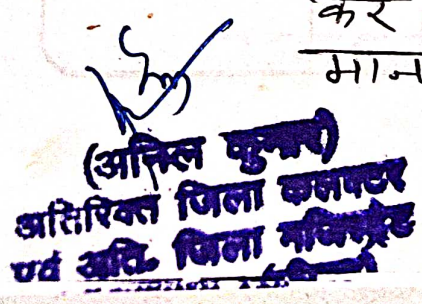 कर
मान
(अनिल कुमार)
अतिरिक्त जिला कलक्टर
एवं अति० जिला मजिस्ट्रेट